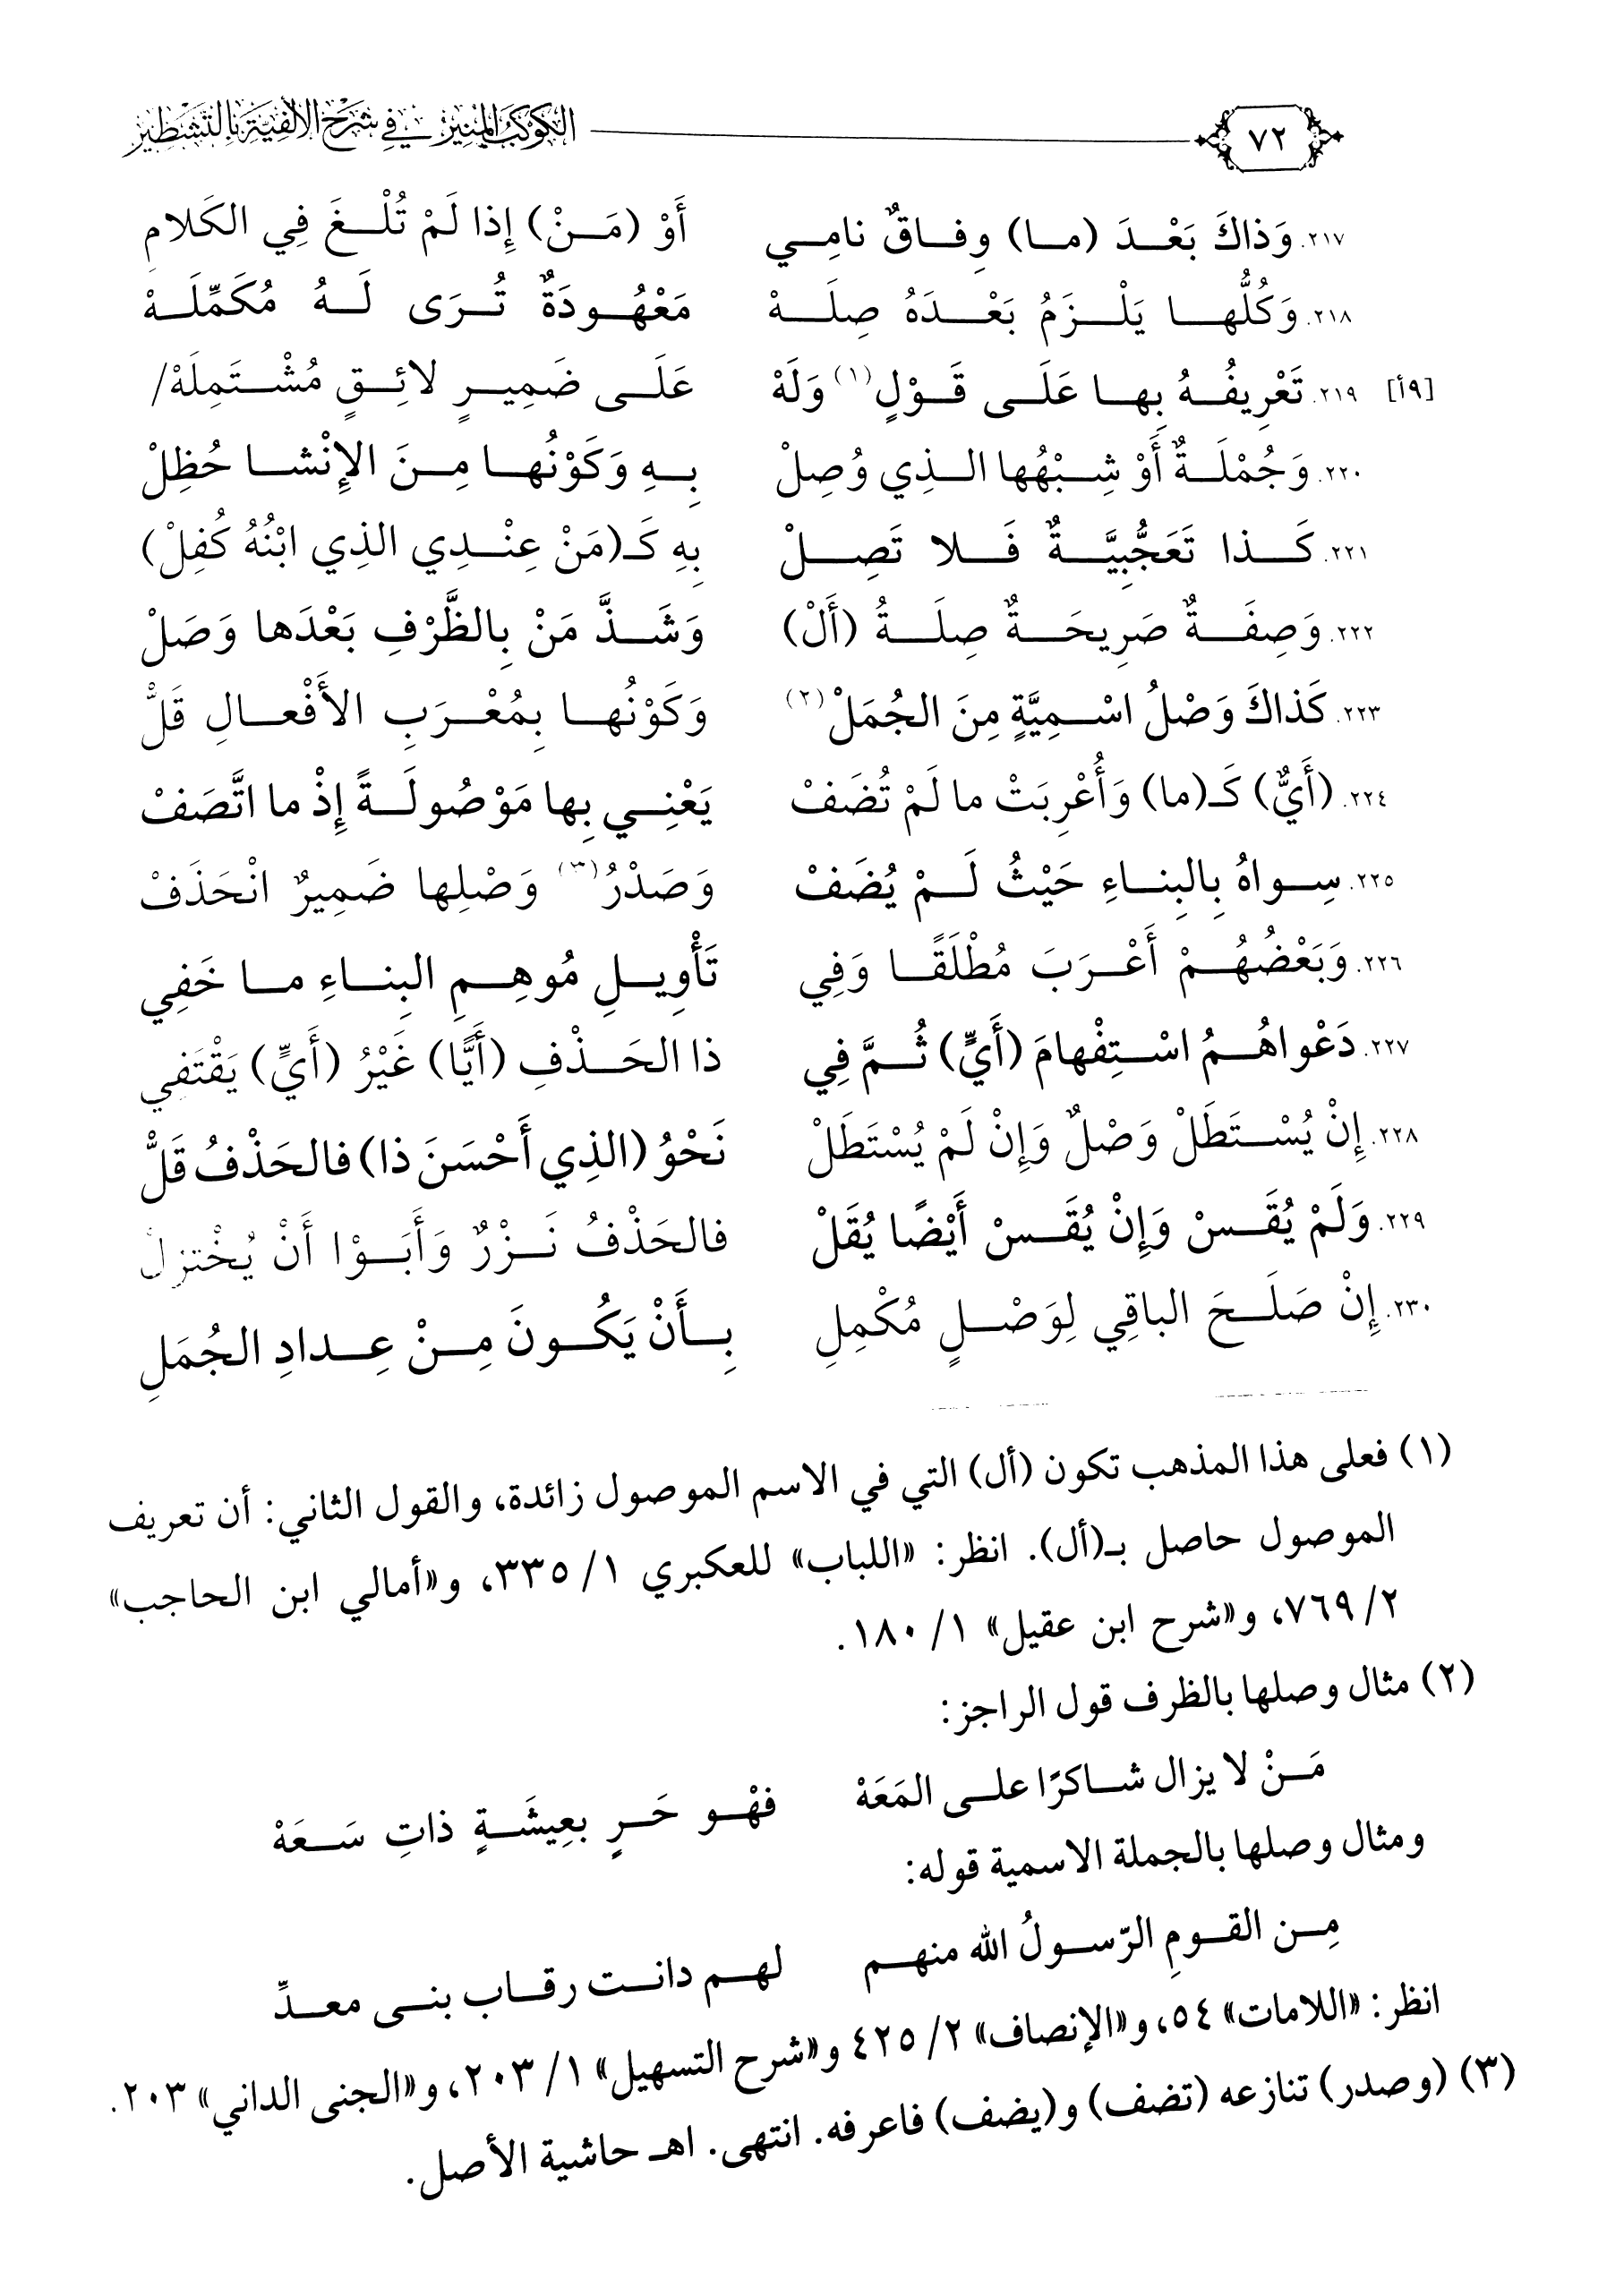 ٧٢ الكوكب المنير في شرح الألفية بالتشطير
٢١٧. وَذاكَ بَعْـدَ (مـا) وِفـاقٌ نامِـي أَوْ (مَـنْ) إِذا لَمْ تُلْـغَ فِي الكَلامِ
٢١٨. وَكُلُّهـا يَلْـزَمُ بَعْـدَهُ صِلَـهْ مَعْهُـودَةٌ تُـرَى لَـهُ مُكَمِّلَـهْ
[٩أ] ٢١٩. تَعْرِيفُـهُ بِهـا عَلَـى قَـوْلٍ(١) وَلَهْ عَلَـى ضَمِيـرٍ لائِـقٍ مُشْـتَمِلَهْ/
٢٢٠. وَجُمْلَـةٌ أَوْ شِـبْهُها الـذِي وُصِلْ بِـهِ وَكَوْنُهـا مِـنَ الإِنْشـا حُظِلْ
٢٢١. كَـذا تَعَجُّبِيَّـةٌ فَـلا تَصِـلْ بِهِ كَـ(مَنْ عِنْـدِي الذِي ابْنُهُ كُفِلْ)
٢٢٢. وَصِفَـةٌ صَرِيحَـةٌ صِلَـةُ (أَلْ) وَشَـذَّ مَنْ بِالظَّرْفِ بَعْدَها وَصَلْ
٢٢٣. كَذاكَ وَصْلُ اسْـمِيَّةٍ مِنَ الجُمَلْ(٢) وَكَوْنُهـا بِمُعْـرَبِ الأَفْعـالِ قَلّْ
٢٢٤. (أَيٌّ) كَـ(ما) وَأُعْرِبَتْ ما لَمْ تُضَفْ يَعْنِـي بِها مَوْصُولَـةً إِذْ ما اتَّصَفْ
٢٢٥. سِـواهُ بِالبِنـاءِ حَيْثُ لَـمْ يُضَفْ وَصَدْرُ(٣) وَصْلِها ضَمِيرٌ انْحَذَفْ
٢٢٦. وَبَعْضُهُـمْ أَعْـرَبَ مُطْلَقًـا وَفِي تَأْوِيـلِ مُوهِـمِ البِنـاءِ مـا خَفِي
٢٢٧. دَعْواهُـمُ اسْـتِفْهامَ (أَيٍّ) ثُـمَّ فِي ذا الحَـذْفِ (أَيًّا) غَيْرُ (أَيٍّ) يَقْتَفِي
٢٢٨. إِنْ يُسْـتَطَلْ وَصْلٌ وَإِنْ لَمْ يُسْتَطَلْ نَحْوُ (الذِي أَحْسَنَ ذا) فالحَذْفُ قَلّْ
٢٢٩. وَلَمْ يُقَـسْ وَإِنْ يُقَـسْ أَيْضًا يُقَلْ فالحَذْفُ نَـزْرٌ وَأَبَـوْا أَنْ يُخْتزلْ
٢٣٠. إِنْ صَلَـحَ الباقِي لِوَصْـلٍ مُكْمِلِ بِـأَنْ يَكُـونَ مِـنْ عِـدادِ الجُمَلِ
(١) فعلى هذا المذهب تكون (أل) التي في الاسم الموصول زائدة، والقول الثاني: أن تعريف
الموصول حاصل بـ(أل). انظر: «اللباب» للعكبري ١/ ٣٣٥، و«أمالي ابن الحاجب»
٢/ ٧٦٩، و«شرح ابن عقيل» ١/ ١٨٠.
(٢) مثال وصلها بالظرف قول الراجز:
مَـنْ لا يزال شـاكرًا علـى المَعَهْ فهْـو حَـرٍ بعِيشَـةٍ ذاتِ سَـعَهْ
ومثال وصلها بالجملة الاسمية قوله:
مِـن القـومِ الرّسـولُ الله منهـم لهـم دانـت رقـاب بنـى معـدِّ
انظر: «اللامات» ٥٤، و«الإنصاف» ٢/ ٤٢٥ و«شرح التسهيل» ١/ ٢٠٣، و«الجنى الداني» ٢٠٣.
(٣) (وصدر) تنازعه (تضف) و(يضف) فاعرفه. انتهى. اهـ حاشية الأصل.